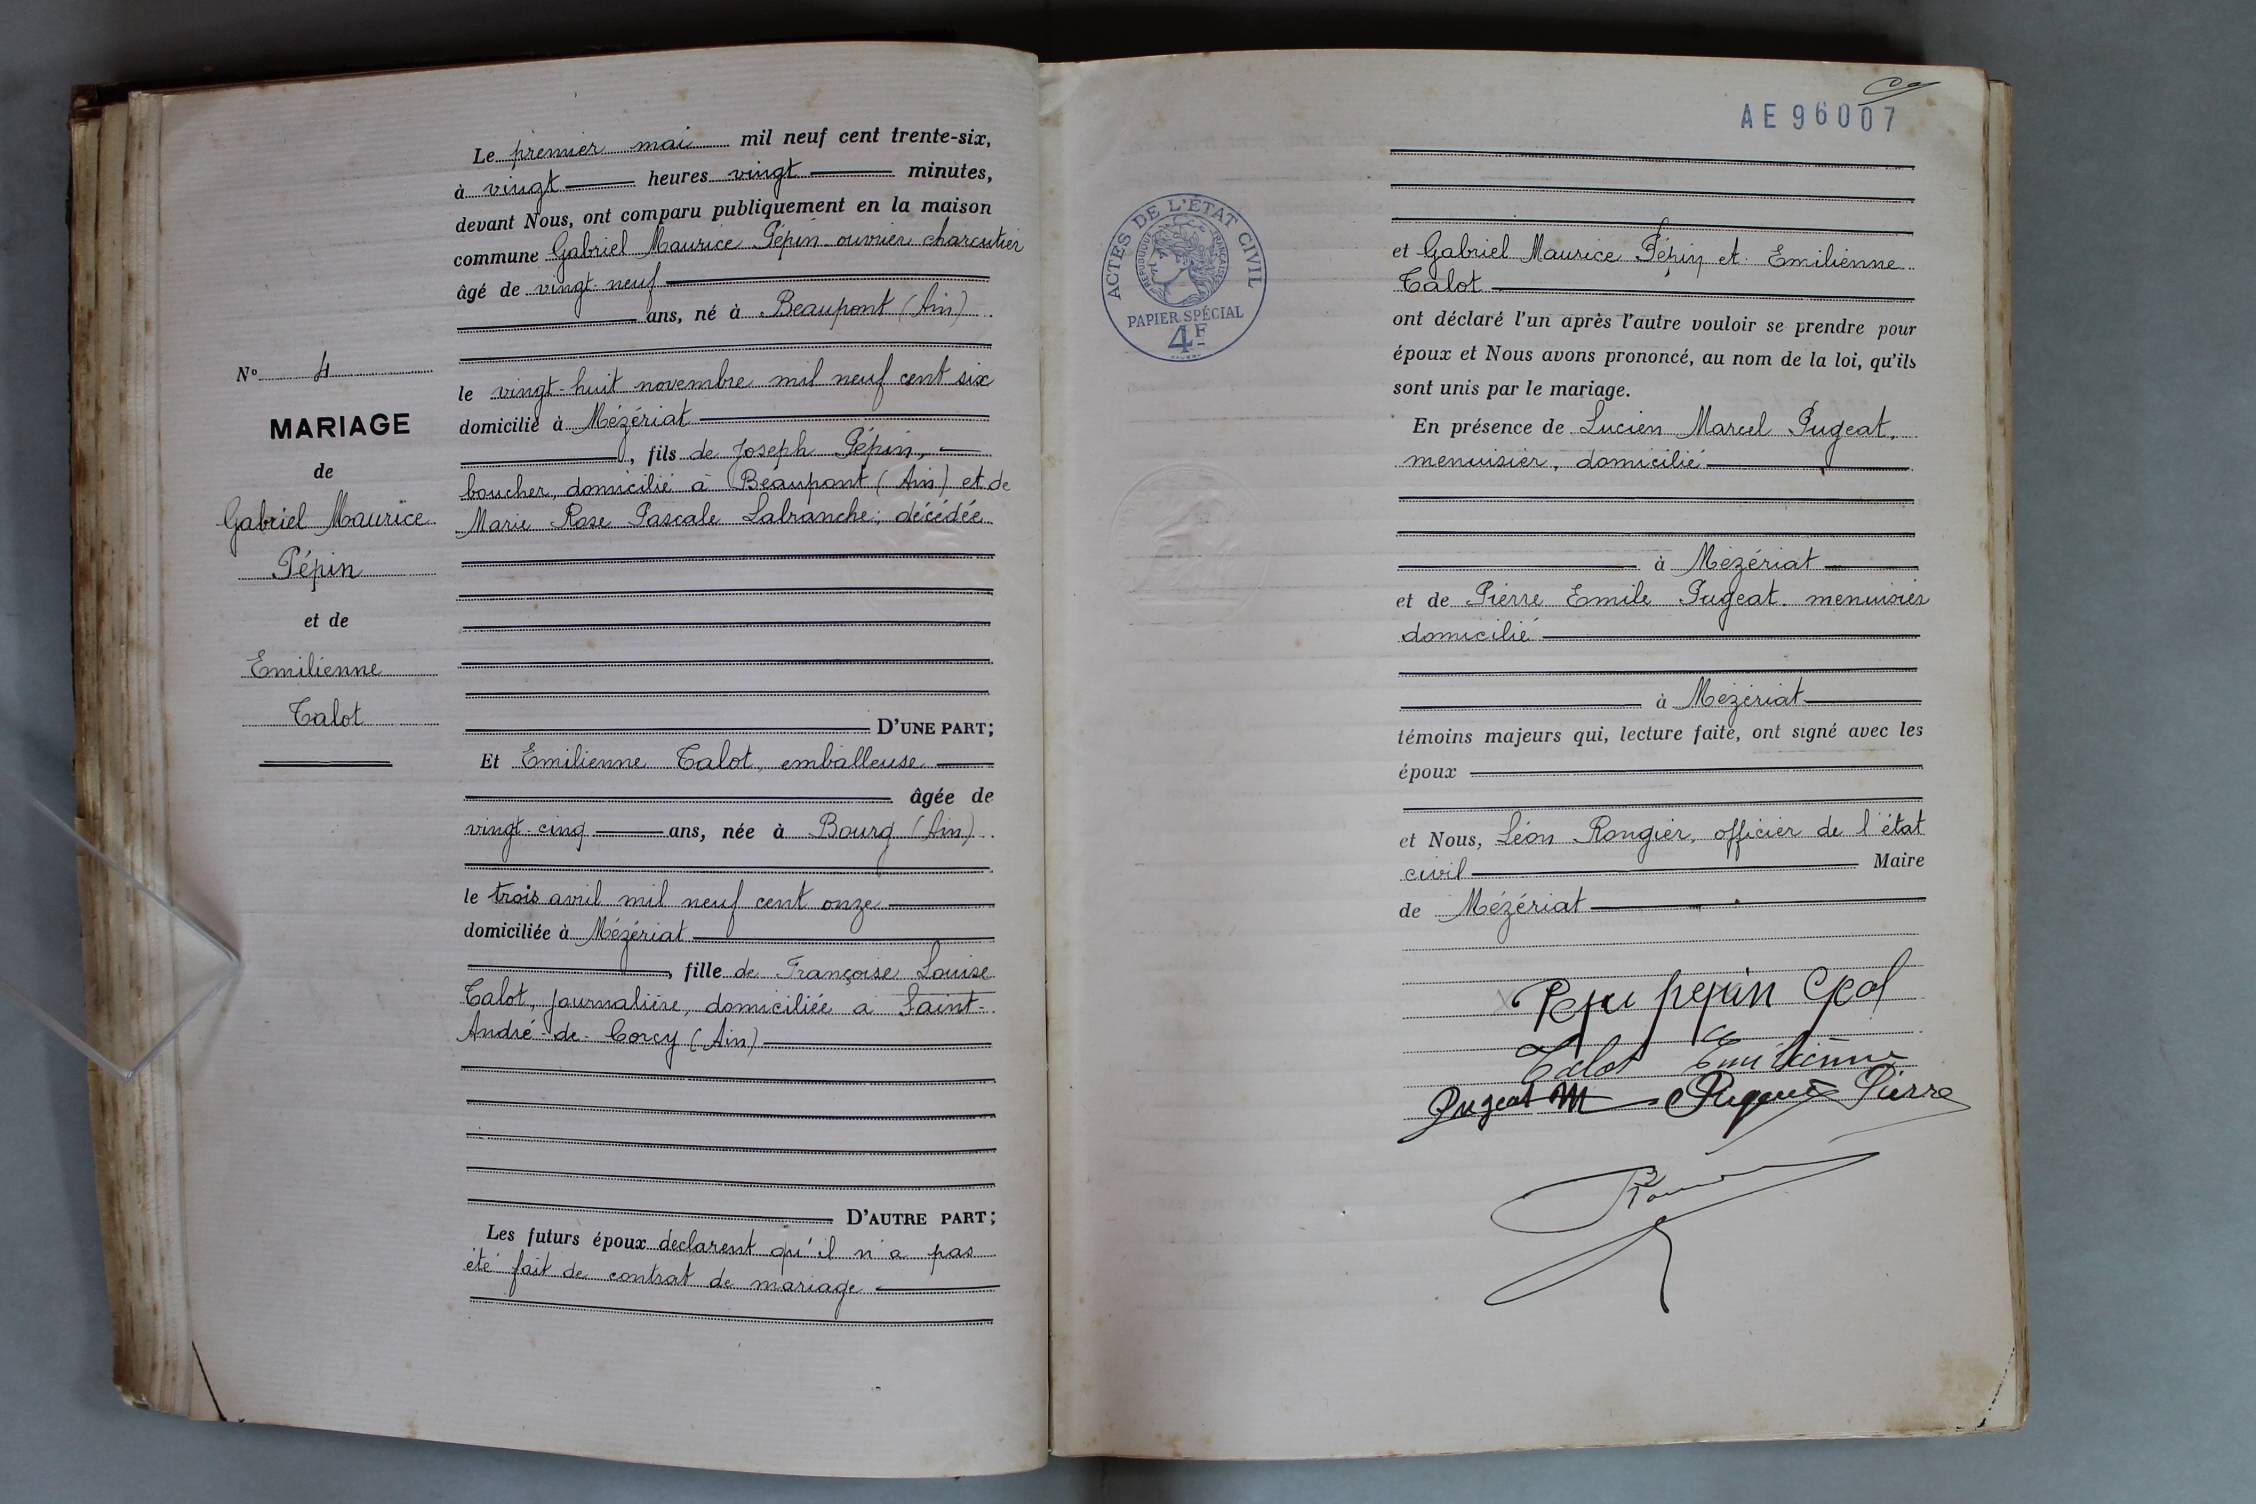 N° 4
MARIAGE
de
Gabriel Maurice
Pépin
et de
Emilienne
Talot
Le premier mai mil neuf cent trente-six,
à vingt heures vingt minutes,
devant Nous, ont comparu publiquement en la maison
commune Gabriel Maurice Pépin ouvrier charcutier
âgé de vingt-neuf
ans, né à Beaupont (Ain)
le vingt-huit novembre mil neuf cent six
domicilié à Mézériat
, fils de Joseph Pépin,
boucher, domicilié à Beaupont (Ain) et de
Marie Rose Pascale Labranche, décédée
D'UNE PART;
Et Emilienne Talot, emballeuse
âgée de
vingt-cinq ans, née à Bourg (Ain)
le trois avril mil neuf cent onze
domiciliée à Mézériat
, fille de Françoise Louise
Talot, journalière, domiciliée à Saint-
André-de-Corcy (Ain)
D'AUTRE PART;
Les futurs époux declarent qu'il n'a pas
été fait de contrat de mariage
AE 96007
ACTES DE L'ÉTAT CIVIL
RÉPUBLIQUE FRANÇAISE
PAPIER SPÉCIAL
4F
et Gabriel Maurice Pépin et Emilienne
Talot
ont déclaré l'un après l'autre vouloir se prendre pour
époux et Nous avons prononcé, au nom de la loi, qu'ils
sont unis par le mariage.
En présence de Lucien Marcel Pugeat,
menuisier, domicilié
à Mézériat
et de Pierre Emile Pugeat. menuisier
domicilié
à Mézériat
témoins majeurs qui, lecture faite, ont signé avec les
époux
et Nous, Léon Rongier, officier de l'état
civil Maire
de Mézériat
pepin
Talot Emilienne
Pugeat M Pugeat Pierre